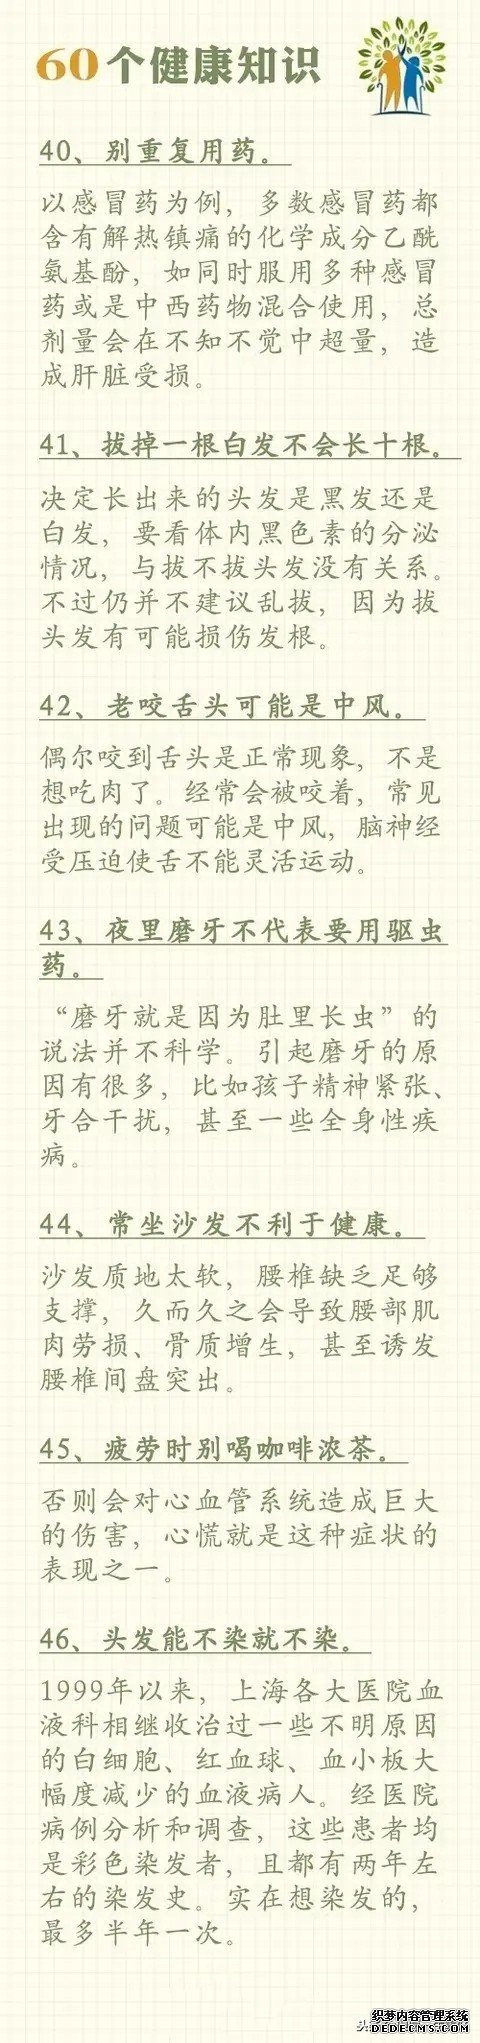 60个健康知识
40、别重复用药。
以感冒药为例，多数感冒药都
含有解热镇痛的化学成分乙酰
氨基酚，如同时服用多种感冒
药或是中西药物混合使用，总
剂量会在不知不觉中超量，造
成肝脏受损。
41、拔掉一根白发不会长十根。
决定长出来的头发是黑发还是
白发，要看体内黑色素的分泌
情况，与拔不拔头发没有关系。
不过仍并不建议乱拔，因为拔
头发有可能损伤发根。
42、老咬舌头可能是中风。
偶尔咬到舌头是正常现象，不是
想吃肉了。经常会被咬着，常见
出现的问题可能是中风，脑神经
受压迫使舌不能灵活运动。
43、夜里磨牙不代表要用驱虫
药。
“磨牙就是因为肚里长虫”的
说法并不科学。引起磨牙的原
因有很多，比如孩子精神紧张、
牙合干扰，甚至一些全身性疾
病。
44、常坐沙发不利于健康。
沙发质地太软，腰椎缺乏足够
支撑，久而久之会导致腰部肌
肉劳损、骨质增生，甚至诱发
腰椎间盘突出。
45、疲劳时别喝咖啡浓茶。
否则会对心血管系统造成巨大
的伤害，心慌就是这种症状的
表现之一。
46、头发能不染就不染。
1999年以来，上海各大医院血
液科相继收治过一些不明原因
的白细胞、红血球、血小板大
幅度减少的血液病人。经医院
病例分析和调查，这些患者均
是彩色染发者，且都有两年左
右的染发史。实在想染发的，
最多半年一次。
头
织梦内容管理系统
DEDECMS.COM